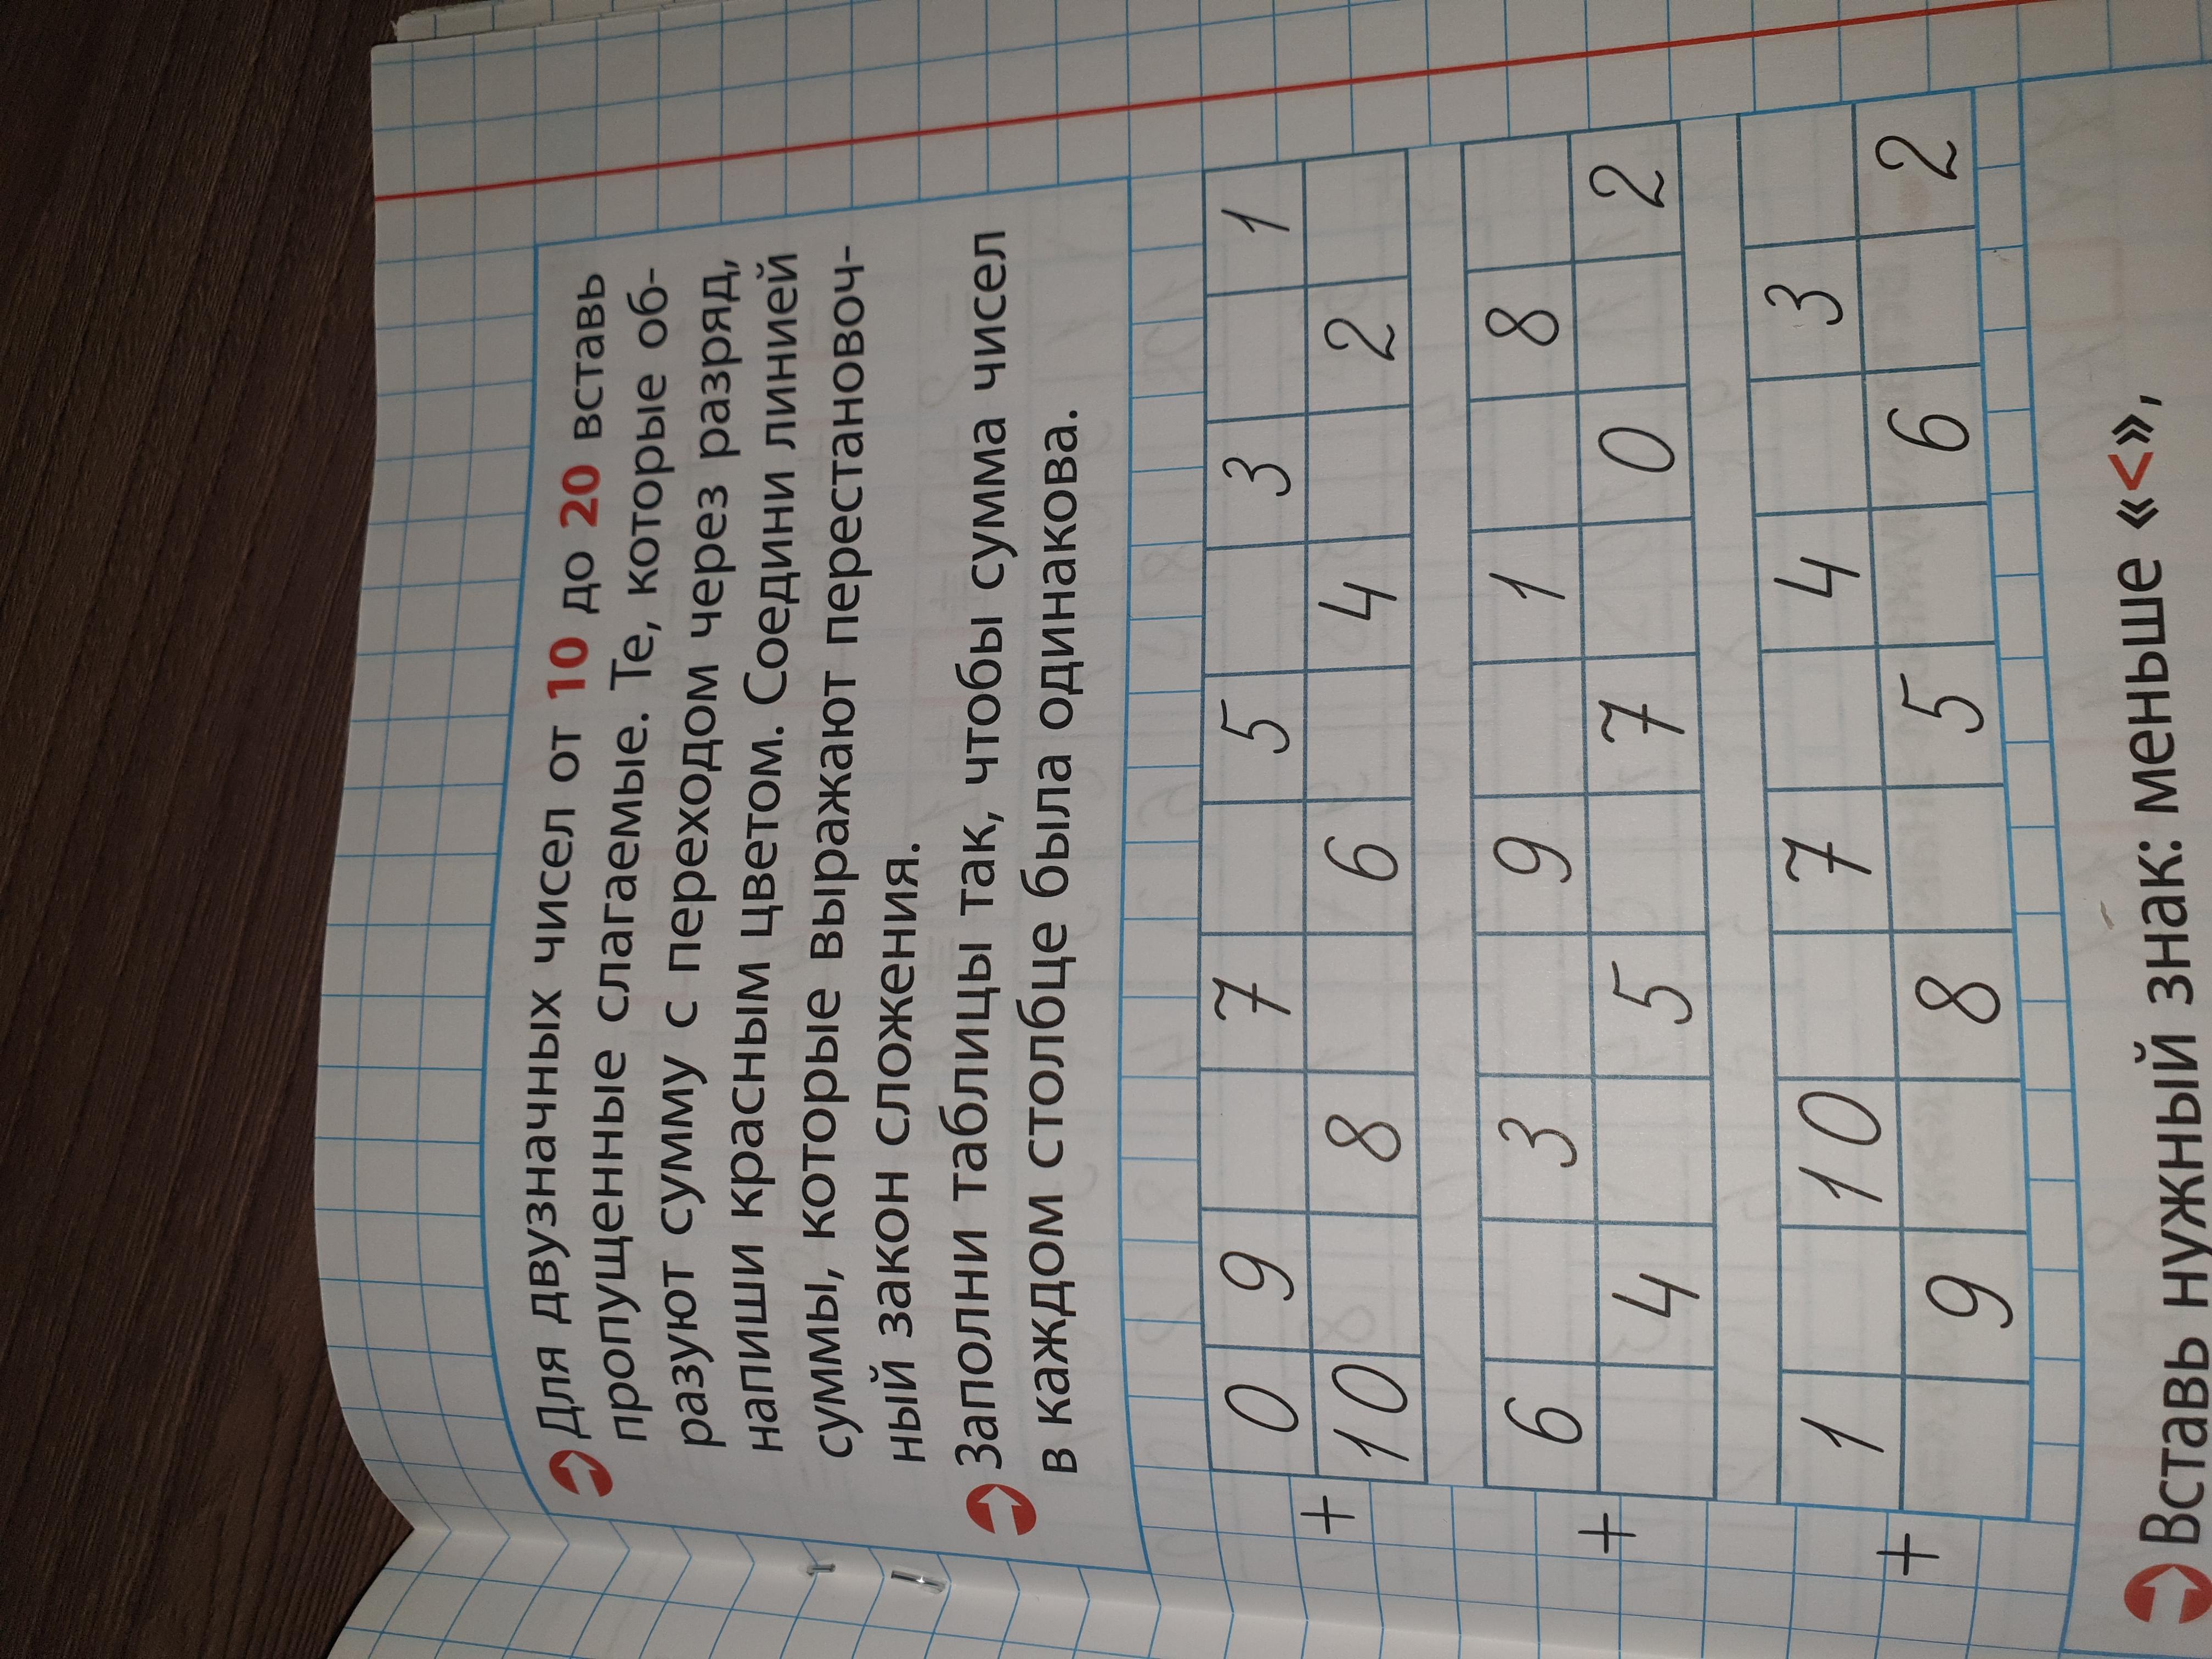 Для двузначных чисел от 10 до 20 вставь
пропущенные слагаемые. Те, которые об-
разуют сумму с переходом через разряд,
напиши красным цветом. Соедини линией
суммы, которые выражают перестановоч-
ный закон сложения.
Заполни таблицы так, чтобы сумма чисел
в каждом столбце была одинакова.
0 9 7 5 3 1
+ 10 8 6 4 2
6 3 9 1 8
+ 4 5 7 0 2
1 10 7 4 3
+ 9 8 5 6 2
Вставь нужный знак: меньше «<»,